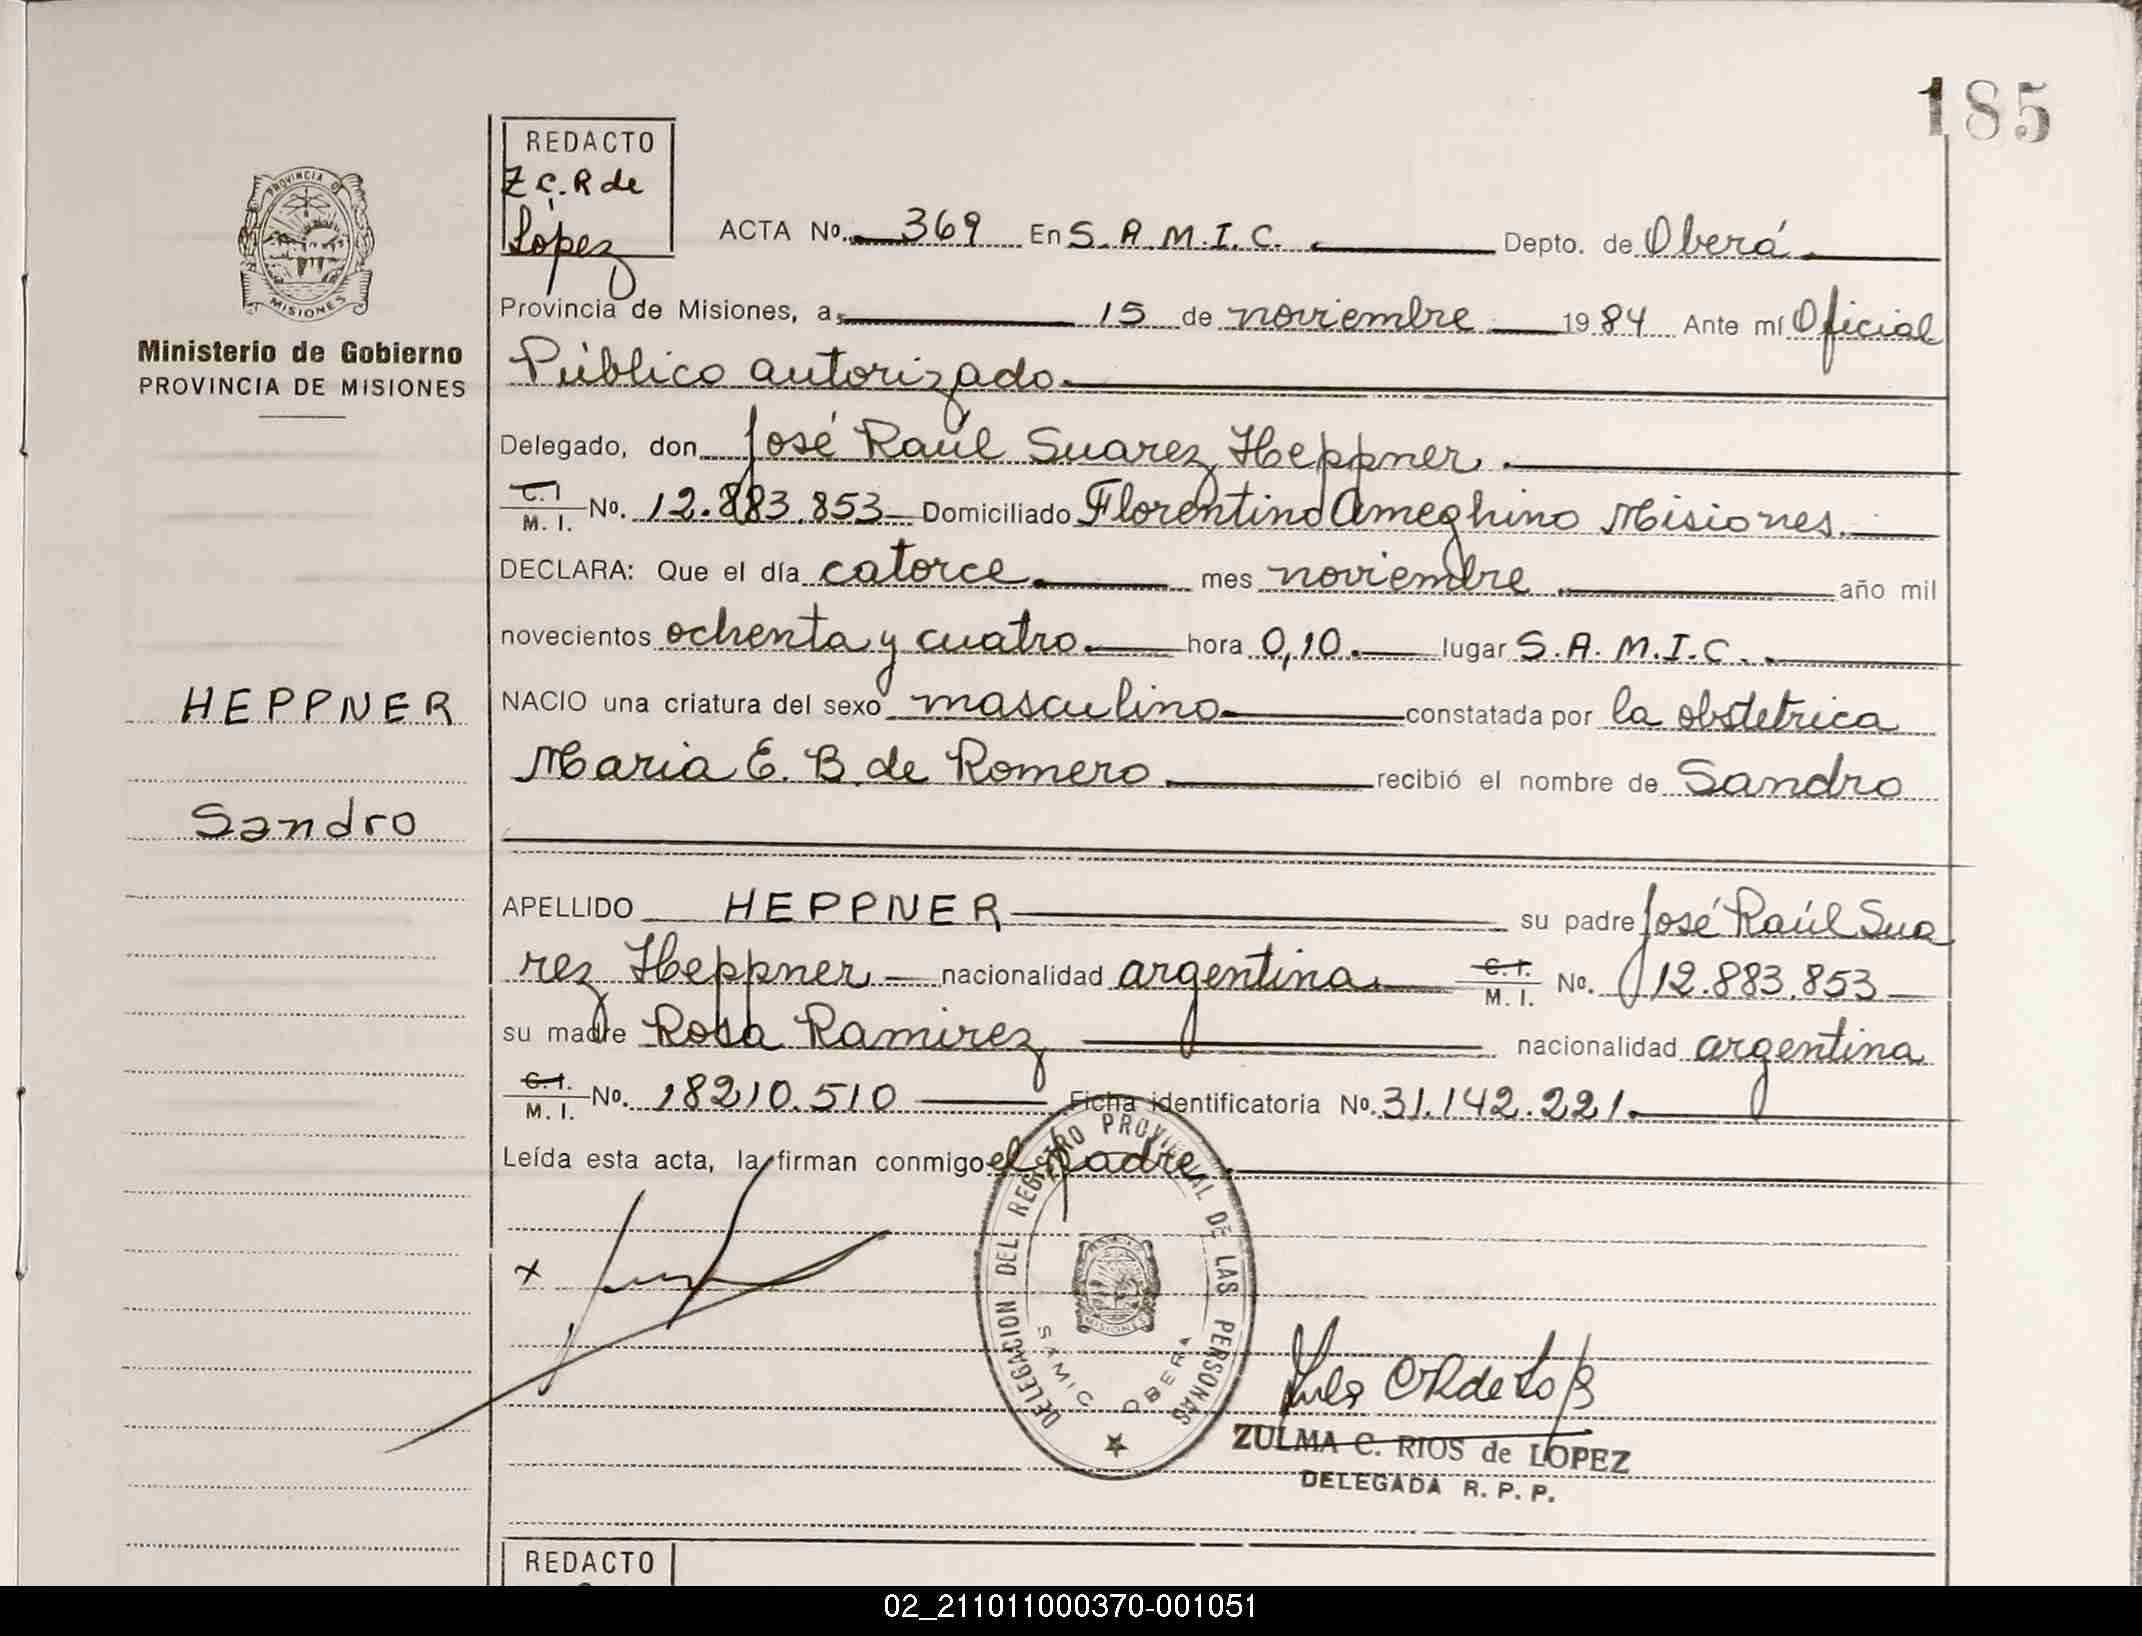 185
REDACTO
Z C. R de
López
PROVINCIA DE
MISIONES
Ministerio de Gobierno
PROVINCIA DE MISIONES
ACTA No. 369 En S. A. M. I. C. Depto. de Oberá
Provincia de Misiones, a 15 de noviembre 1984 Ante mí Oficial
Público autorizado.
Delegado, don José Raúl Suarez Heppner.
C. I
M. I. No. 12.883.853 Domiciliado Florentino Ameghino Misiones.
DECLARA: Que el día catorce mes noviembre año mil
novecientos ochenta y cuatro hora 0,10. lugar S. A. M. I. C.
HEPPNER
NACIO una criatura del sexo masculino constatada por la obstetrica
Maria E. B. de Romero recibió el nombre de Sandro
Sandro
APELLIDO HEPPNER su padre José Raúl Sua
rez Heppner nacionalidad argentina C. I.
M. I. No. 12.883.853
su madre Rosa Ramirez nacionalidad argentina
C. I.
M. I. No. 18210.510 Ficha identificatoria No. 31.142.221.
Leída esta acta, la firman conmigo el padre.
x
DELEGACION DEL REGISTRO PROVINCIAL DE LAS PERSONAS
MISIONES
SAMIC OBERA
ZULMA C. RIOS de LOPEZ
DELEGADA R. P. P.
REDACTO
02_211011000370-001051